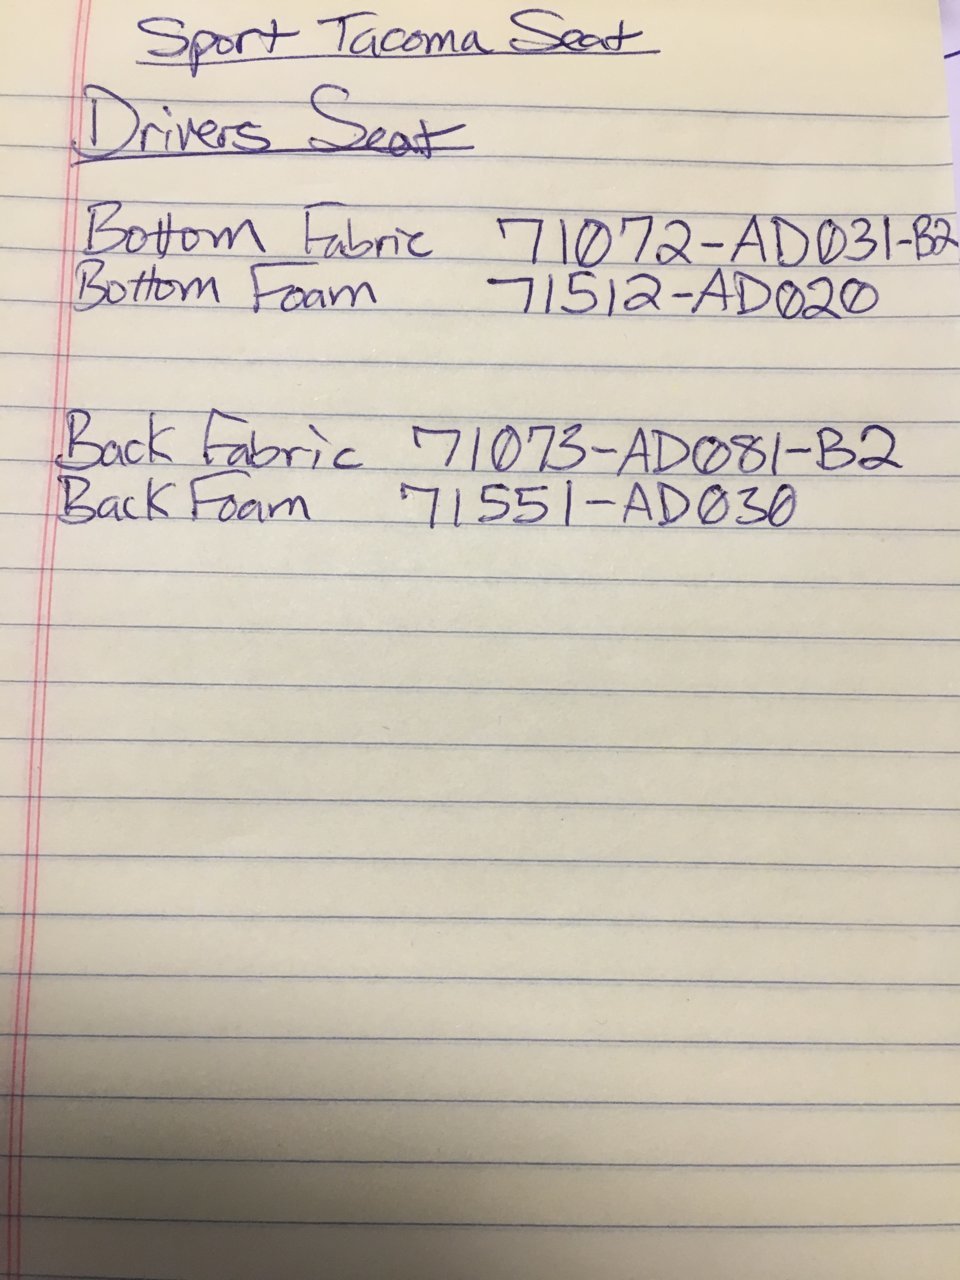 Sport Tacoma Seat
Drivers Seat
Bottom Fabric 71072-AD031-B2
Bottom Foam 71512-AD020
Back Fabric 71073-AD081-B2
Back Foam 71551-AD030